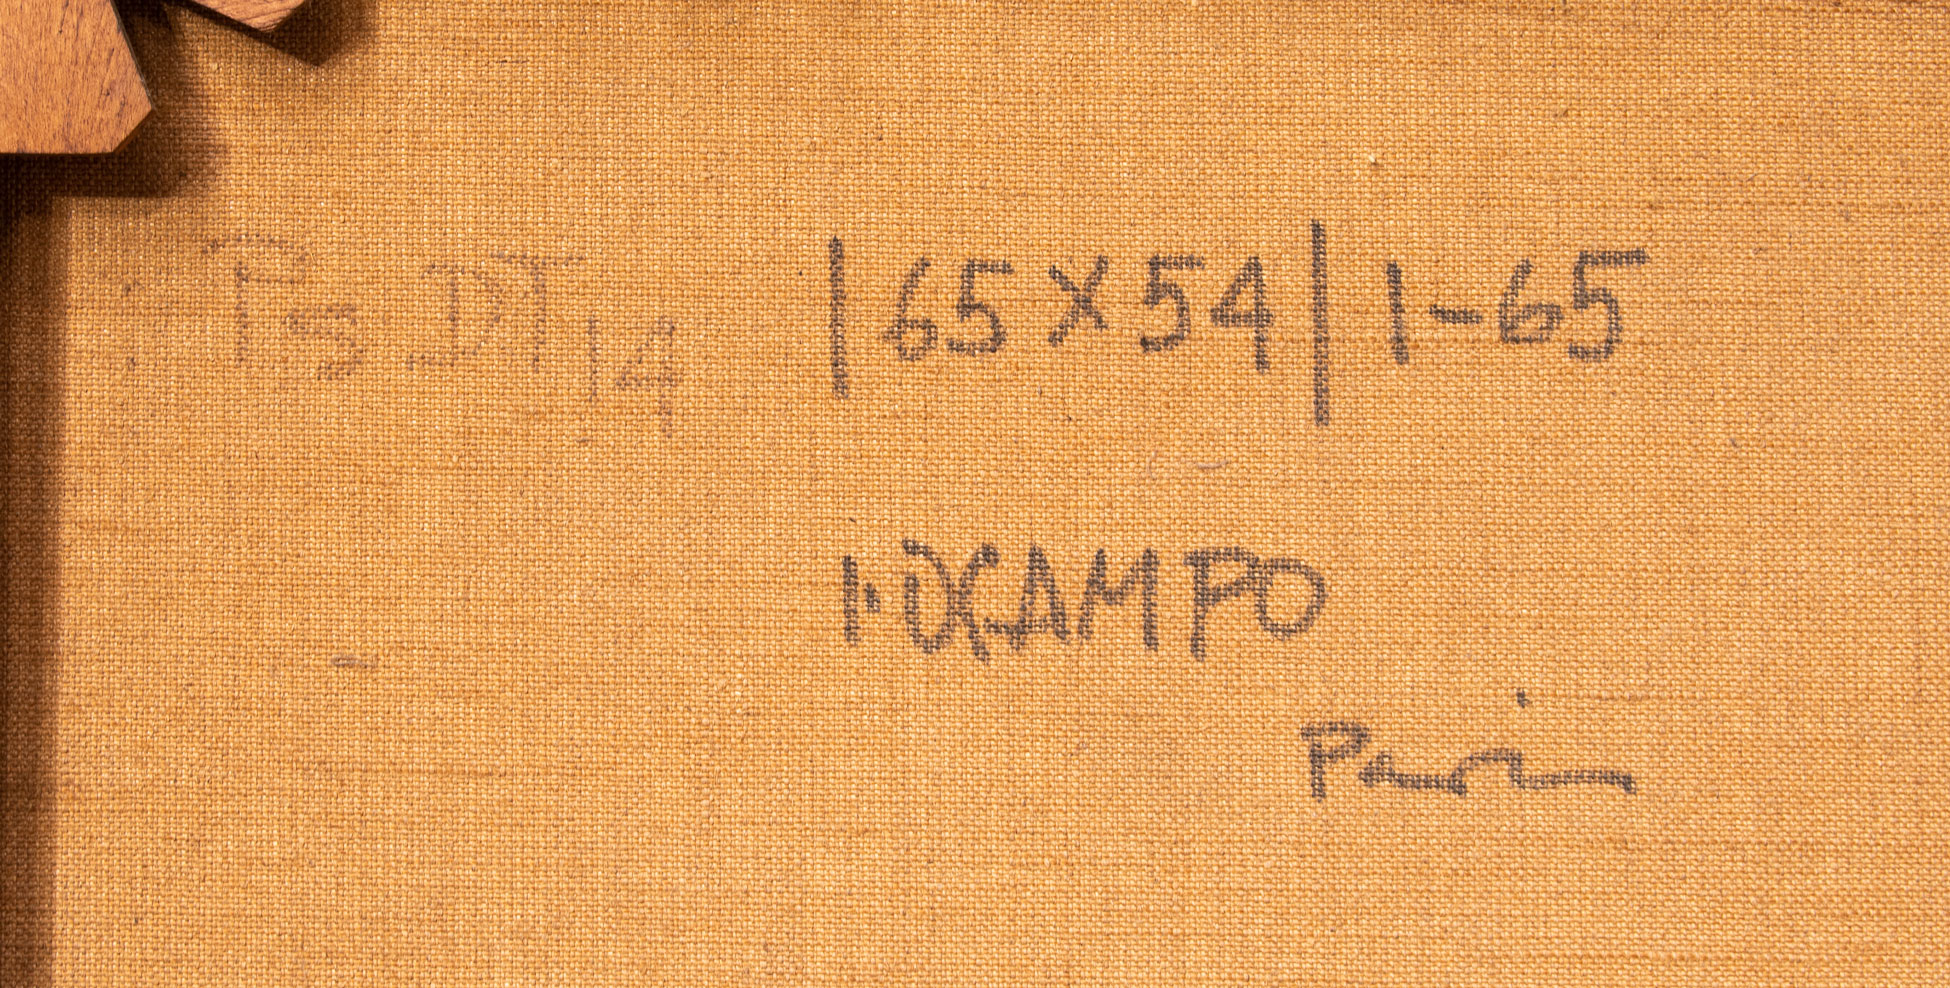 Ps DT 14 | 65 X 54 | 1-65
I. OCAMPO
Paris